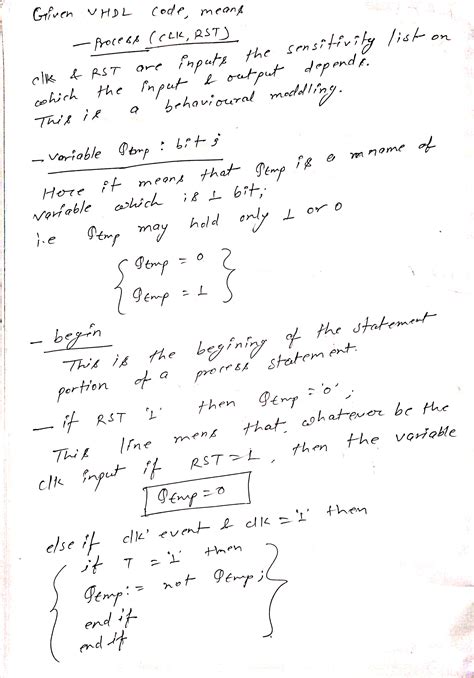 Given VHDL code, means
— Process (CLK, RST)
clk & RST are inputs the sensitivity list on
which the input & output depends.
This is a behavioural moddling.
— variable Qtmp : bit ;
Here it means that Qtmp is a mname of
variable which is 1 bit;
i.e Qtmp may hold only 1 or 0
{ Qtmp = 0 }
{ Qtmp = 1 }
— begin
This is the begining of the statement
portion of a process statement.
— if RST '1' then Qtmp = '0' ;
This line mens that, whatever be the
clk input if RST = 1, then the variable
Qtmp = 0
else if clk' event & clk = '1' then
if T = '1' then
Qtmp := not Qtmp ;
end if
end if